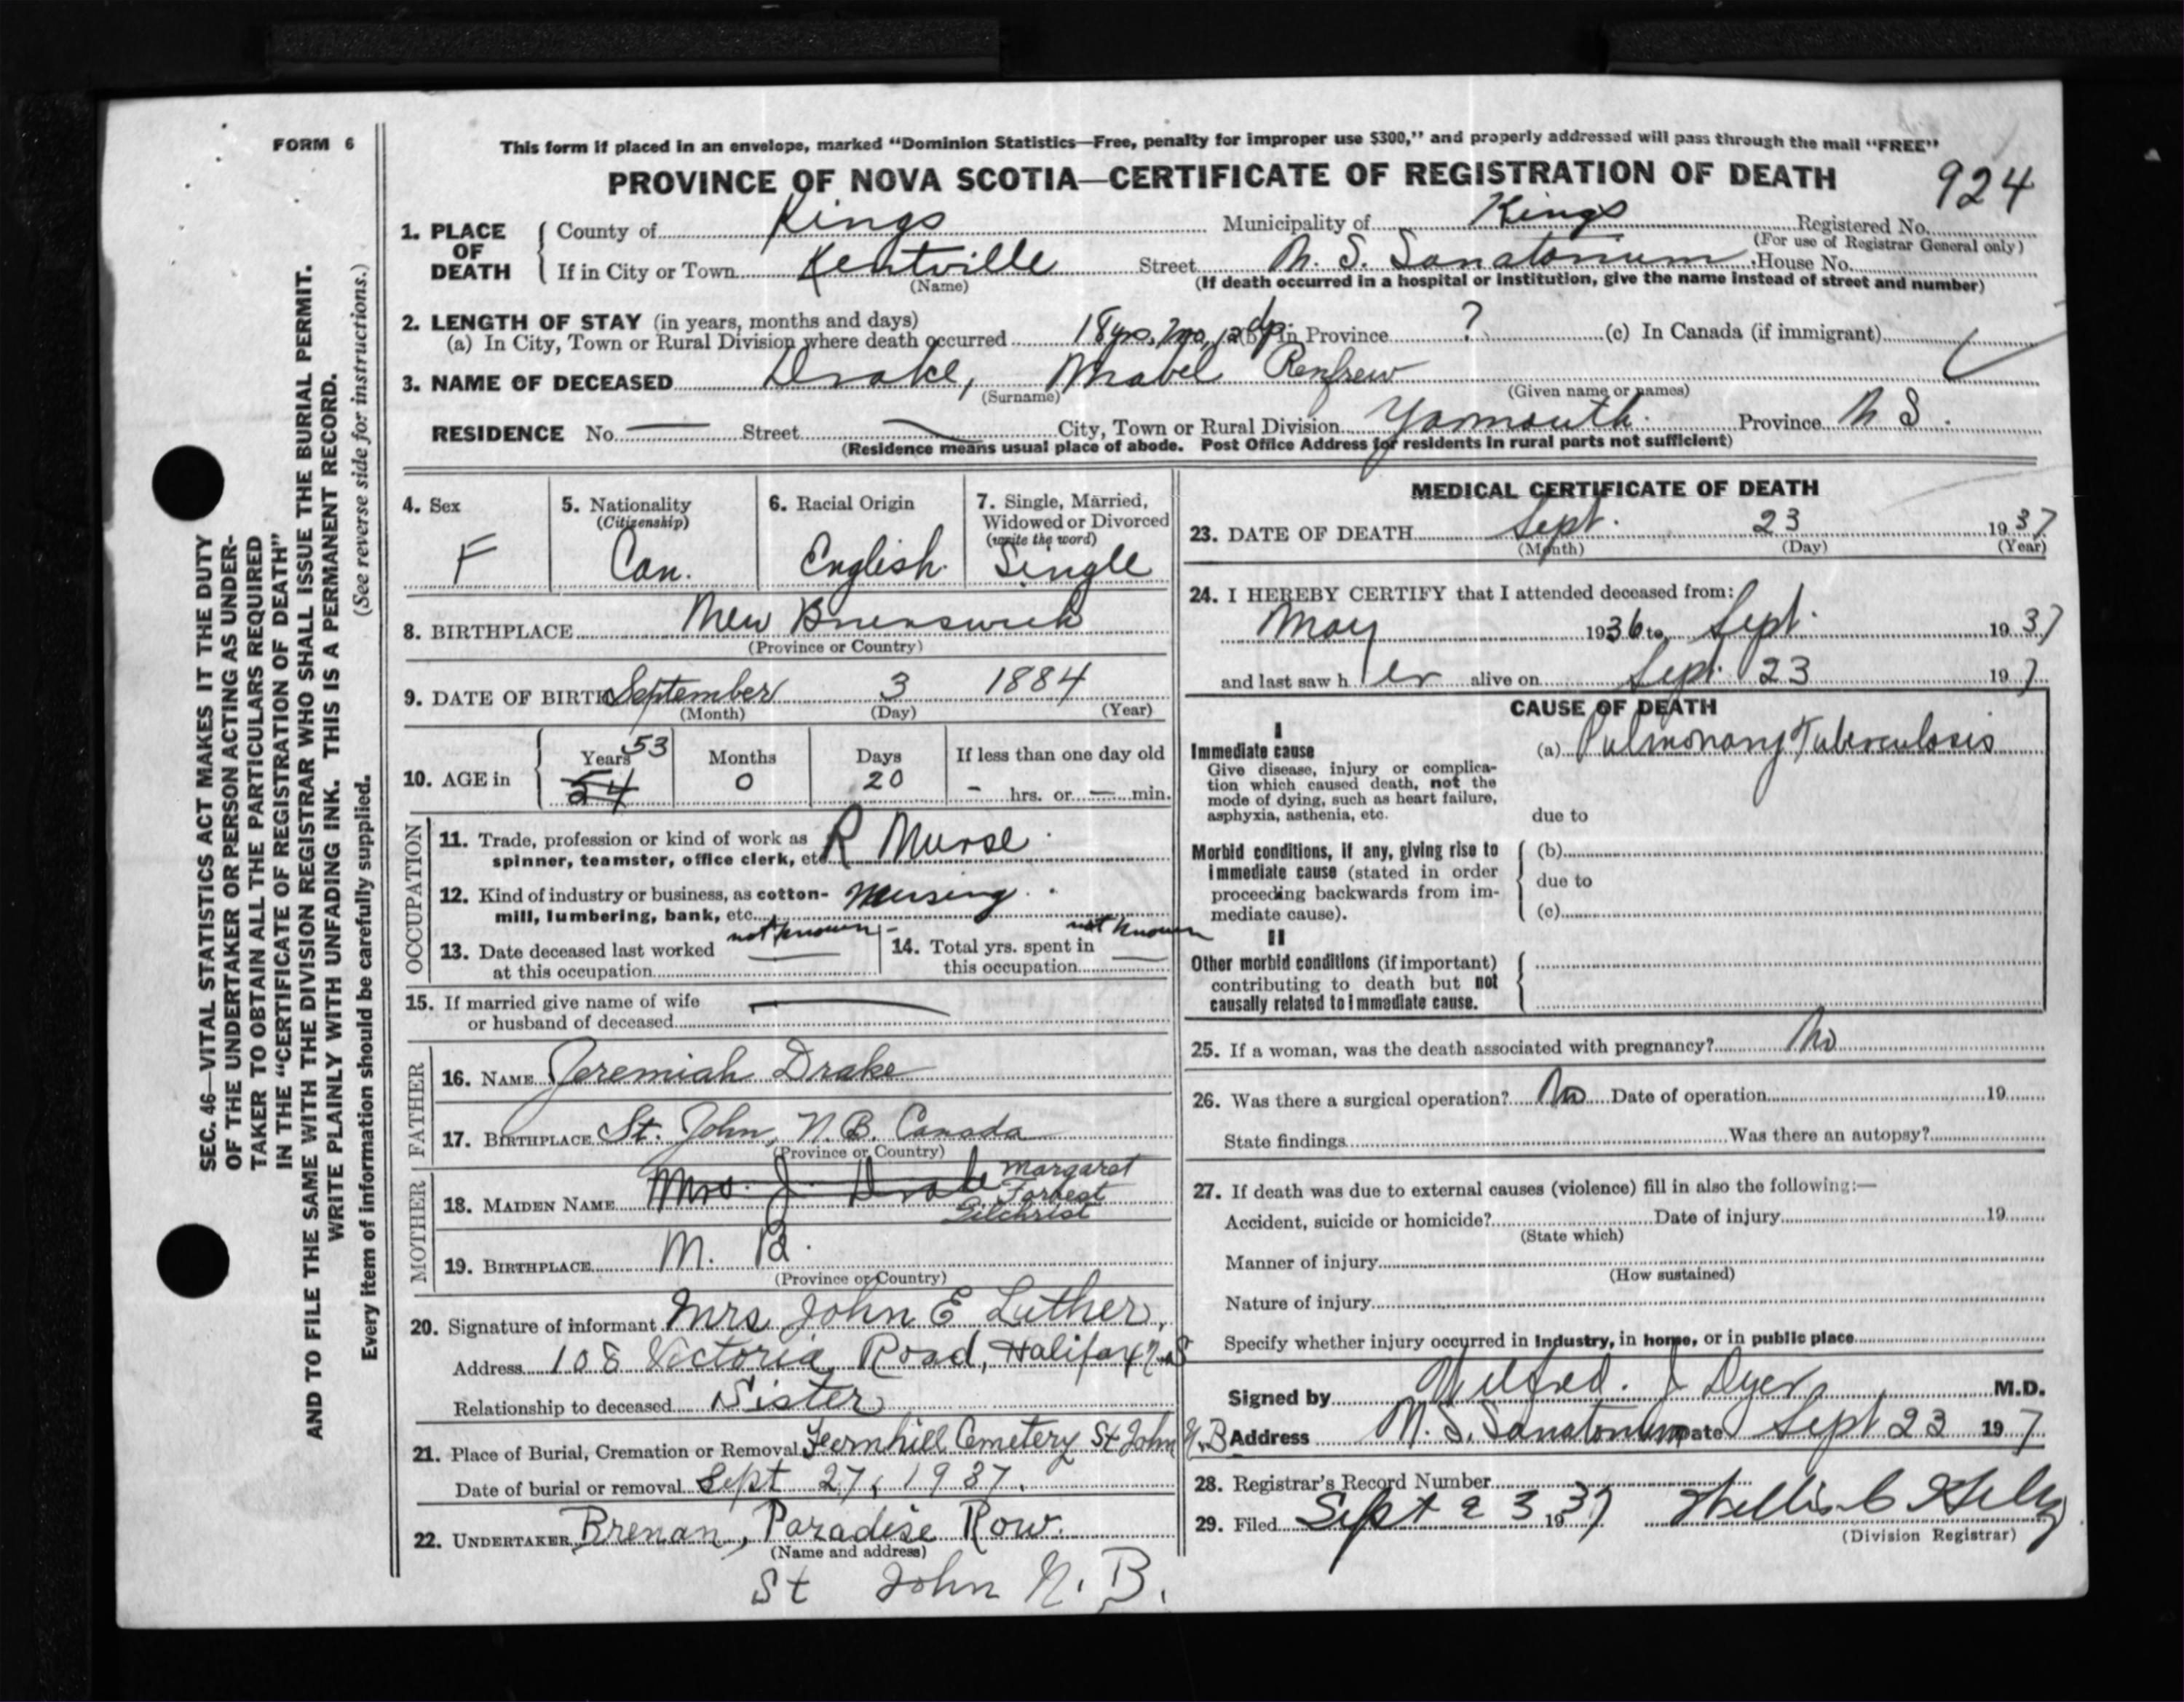 FORM 6
This form if placed in an envelope, marked "Dominion Statistics—Free, penalty for improper use $300," and properly addressed will pass through the mail "FREE"
PROVINCE OF NOVA SCOTIA—CERTIFICATE OF REGISTRATION OF DEATH
924
1. PLACE OF DEATH
County of Kings Municipality of Kings Registered No.
(For use of Registrar General only)
If in City or Town Kentville Street N. S. Sanatorium House No.
(Name) (If death occurred in a hospital or institution, give the name instead of street and number)
2. LENGTH OF STAY (in years, months and days)
(a) In City, Town or Rural Division where death occurred 18 yrs. 7 mo. 12 dys. (b) In Province ? (c) In Canada (if immigrant)
3. NAME OF DECEASED Drake, Mabel Renfrew
(Surname) (Given name or names)
RESIDENCE No. — Street — City, Town or Rural Division Yarmouth. Province N S.
(Residence means usual place of abode. Post Office Address for residents in rural parts not sufficient)
4. Sex
F
5. Nationality
(Citizenship)
Can.
6. Racial Origin
English.
7. Single, Married,
Widowed or Divorced
(write the word)
Single
8. BIRTHPLACE New Brunswick
(Province or Country)
9. DATE OF BIRTH September 3 1884
(Month) (Day) (Year)
10. AGE in
Years 53
54
Months
0
Days
20
If less than one day old
- hrs. or — min.
OCCUPATION
11. Trade, profession or kind of work as
spinner, teamster, office clerk, etc. R Nurse.
12. Kind of industry or business, as cotton-
mill, lumbering, bank, etc. Nursing.
13. Date deceased last worked
at this occupation not known —
14. Total yrs. spent in
this occupation not known —
15. If married give name of wife
or husband of deceased —
FATHER
16. NAME Jeremiah Drake
17. BIRTHPLACE St. John, N.B. Canada
(Province or Country)
MOTHER
18. MAIDEN NAME Mrs. J. Drake Margaret
Forbest
Gilchrist
19. BIRTHPLACE N. B.
(Province or Country)
20. Signature of informant Mrs John E Luther,
Address 108 Victoria Road, Halifax N.S
Relationship to deceased Sister
21. Place of Burial, Cremation or Removal Fernhill Cemetery St John N.B
Date of burial or removal Sept 27, 1937.
22. UNDERTAKER Brenan, Paradise Row.
(Name and address)
St John N. B.
MEDICAL CERTIFICATE OF DEATH
23. DATE OF DEATH Sept. 23 1937
(Month) (Day) (Year)
24. I HEREBY CERTIFY that I attended deceased from:
May 1936 to Sept. 1937
and last saw h er alive on Sept. 23 197
CAUSE OF DEATH
I
Immediate cause
Give disease, injury or complica-
tion which caused death, not the
mode of dying, such as heart failure,
asphyxia, asthenia, etc.
(a) Pulmonary Tuberculosis
due to
Morbid conditions, if any, giving rise to
immediate cause (stated in order
proceeding backwards from im-
mediate cause).
(b)
due to
(c)
II
Other morbid conditions (if important)
contributing to death but not
causally related to immediate cause.
25. If a woman, was the death associated with pregnancy? No
26. Was there a surgical operation? No Date of operation 19
State findings Was there an autopsy?
27. If death was due to external causes (violence) fill in also the following:—
Accident, suicide or homicide? Date of injury 19
(State which)
Manner of injury
(How sustained)
Nature of injury
Specify whether injury occurred in industry, in home, or in public place
Signed by Wilfred. J Dyer M.D.
Address N. S. Sanatorium Date Sept 23 197
28. Registrar's Record Number
29. Filed Sept 23 1937
(Division Registrar)
SEC. 46—VITAL STATISTICS ACT MAKES IT THE DUTY
OF THE UNDERTAKER OR PERSON ACTING AS UNDER-
TAKER TO OBTAIN ALL THE PARTICULARS REQUIRED
IN THE "CERTIFICATE OF REGISTRATION OF DEATH"
AND TO FILE THE SAME WITH THE DIVISION REGISTRAR WHO SHALL ISSUE THE BURIAL PERMIT.
WRITE PLAINLY WITH UNFADING INK. THIS IS A PERMANENT RECORD.
(See reverse side for instructions.)
Every item of information should be carefully supplied.